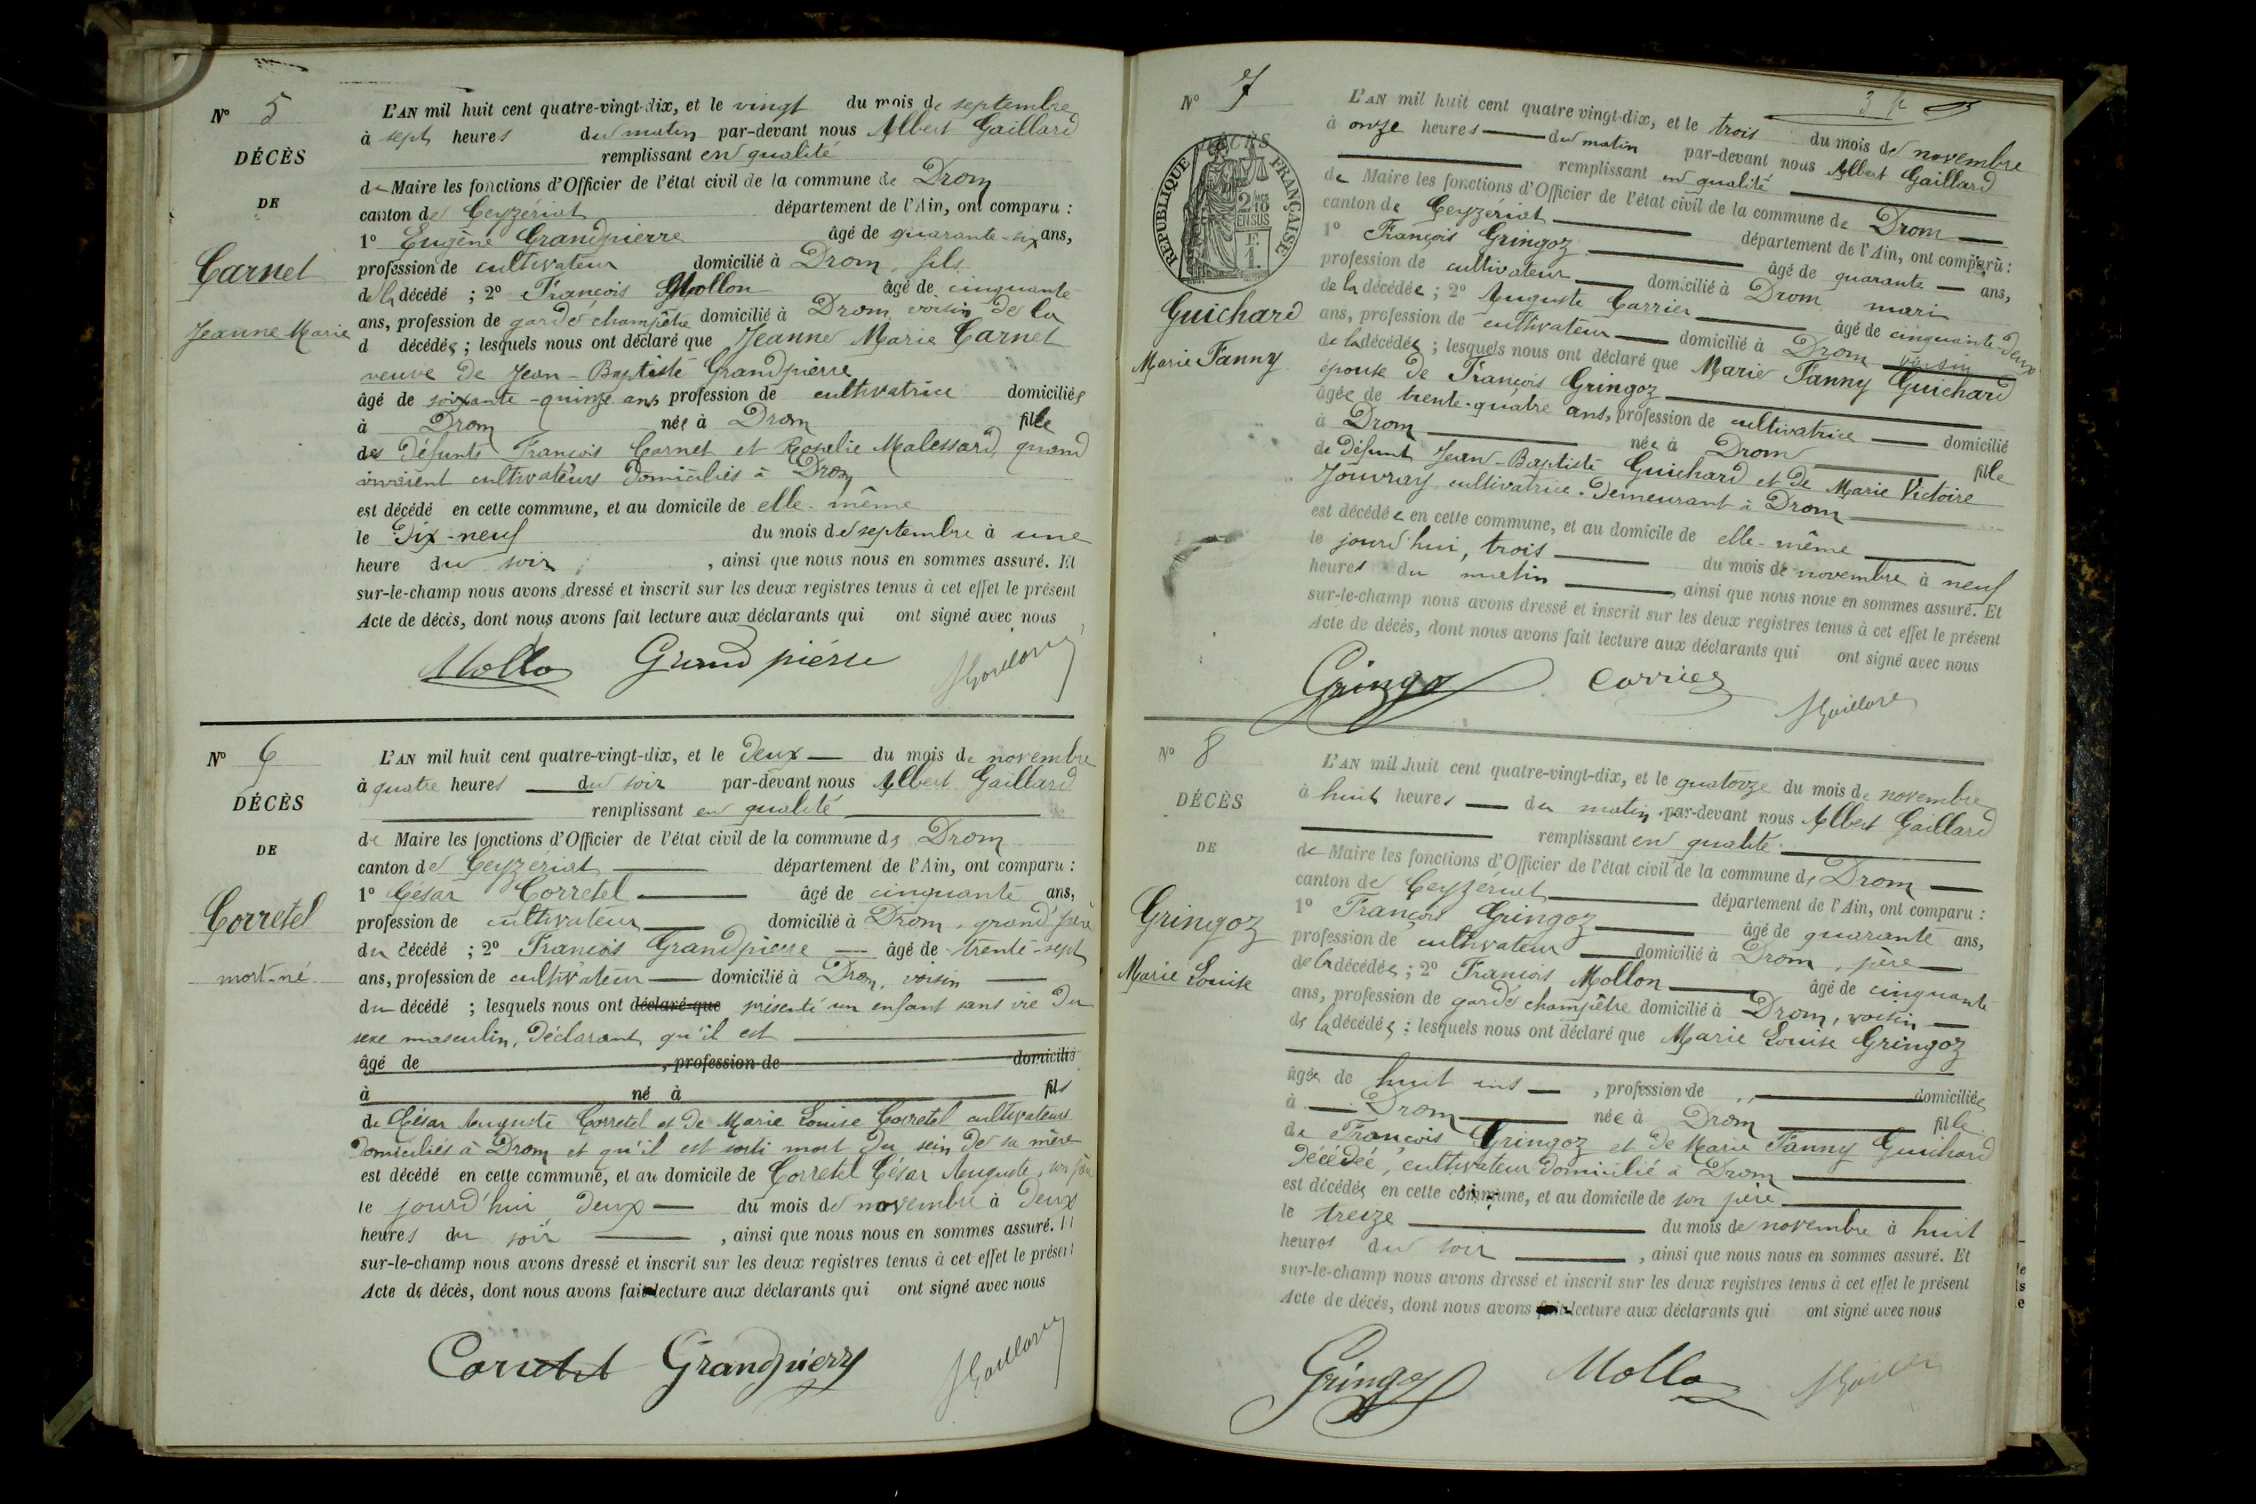 N° 5
DÉCÈS
DE
Carnet
Jeanne Marie
L'AN mil huit cent quatre-vingt-dix, et le vingt du mois de septembre
à sept heures du matin par-devant nous Albert Gaillard
remplissant en qualité
de Maire les fonctions d'Officier de l'état civil de la commune de Drom
canton de Ceyzériat département de l'Ain, ont comparu :
1° Eugène Grandpierre âgé de quarante-six ans,
profession de cultivateur domicilié à Drom, fils
de la décédé ; 2° François Mollon âgé de cinquante
ans, profession de garde champêtre domicilié à Drom, voisin de la
d décédée ; lesquels nous ont déclaré que Jeanne Marie Carnet
veuve de Jean-Baptiste Grandpierre
âgé de soixante-quinze ans profession de cultivatrice domiciliée
à Drom née à Drom fille
des défunts François Carnet et Rosalie Malessard, quand
vivaient cultivateurs domiciliés à Drom
est décédé en cette commune, et au domicile de elle-même
le dix-neuf du mois de septembre à une
heure du soir, , ainsi que nous nous en sommes assuré. Et
sur-le-champ nous avons dressé et inscrit sur les deux registres tenus à cet effet le présent
Acte de décès, dont nous avons fait lecture aux déclarants qui ont signé avec nous
Mollon Grandpierre AGaillard
N° 6
DÉCÈS
DE
Corretel
mort-né
L'AN mil huit cent quatre-vingt-dix, et le deux du mois de novembre
à quatre heures du soir par-devant nous Albert Gaillard
remplissant en qualité
de Maire les fonctions d'Officier de l'état civil de la commune de Drom
canton de Ceyzériat département de l'Ain, ont comparu :
1° César Corretel âgé de cinquante ans,
profession de cultivateur domicilié à Drom, grand'père
du décédé ; 2° François Grandpierre âgé de trente-sept
ans, profession de cultivateur domicilié à Drom, voisin
du décédé ; lesquels nous ont déclaré que présenté un enfant sans vie du
sexe masculin, déclarant qu'il est
âgé de , profession de domicilié
à né à fils
de César Auguste Corretel et de Marie Louise Corretel cultivateurs
domiciliés à Drom et qu'il est sorti mort du sein de sa mère
est décédé en cette commune, et au domicile de Corretel César Auguste, son père
le jourd'hui deux du mois de novembre à deux
heures du soir , ainsi que nous nous en sommes assuré. Et
sur-le-champ nous avons dressé et inscrit sur les deux registres tenus à cet effet le présent
Acte de décès, dont nous avons fait lecture aux déclarants qui ont signé avec nous
Corretel Grandpierre AGaillard
N° 7
DÉCÈS
RÉPUBLIQUE FRANÇAISE
2 DMES 10
EN SUS
Guichard
Marie Fanny
L'AN mil huit cent quatre vingt-dix, et le trois du mois de novembre
à onze heures du matin par-devant nous Albert Gaillard
remplissant en qualité
de Maire les fonctions d'Officier de l'état civil de la commune de Drom
canton de Ceyzériat département de l'Ain, ont comparu :
1° François Gringoz âgé de quarante ans,
profession de cultivateur domicilié à Drom mari
de la décédée ; 2° Auguste Carrier âgé de cinquante-deux
ans, profession de cultivateur domicilié à Drom voisin
de la décédée ; lesquels nous ont déclaré que Marie Fanny Guichard
épouse de François Gringoz
âgée de trente-quatre ans, profession de cultivatrice domicilié
à Drom née à Drom fille
de défunt Jean-Baptiste Guichard et de Marie Victoire
Jouvray cultivatrice demeurant à Drom
est décédée en cette commune, et au domicile de elle-même
le jourd'hui, trois du mois de novembre à neuf
heures du matin , ainsi que nous nous en sommes assuré. Et
sur-le-champ nous avons dressé et inscrit sur les deux registres tenus à cet effet le présent
Acte de décès, dont nous avons fait lecture aux déclarants qui ont signé avec nous
Gringoz Carrier AGaillard
N° 8
DÉCÈS
DE
Gringoz
Marie Louise
L'AN mil huit cent quatre-vingt-dix, et le quatorze du mois de novembre
à huit heures du matin par-devant nous Albert Gaillard
remplissant en qualité
de Maire les fonctions d'Officier de l'état civil de la commune de Drom
canton de Ceyzériat département de l'Ain, ont comparu :
1° François Gringoz âgé de quarante ans,
profession de cultivateur domicilié à Drom, père
de la décédée ; 2° François Mollon âgé de cinquante
ans, profession de garde champêtre domicilié à Drom, voisin
de la décédée ; lesquels nous ont déclaré que Marie Louise Gringoz
âgée de huit ans , profession de ,, domiciliée
à Drom née à Drom fille
de François Gringoz et de Marie Fanny Guichard
décédée, cultivateur domicilié à Drom
est décédée en cette commune, et au domicile de son père
le treize du mois de novembre à huit
heures du soir , ainsi que nous nous en sommes assuré. Et
sur-le-champ nous avons dressé et inscrit sur les deux registres tenus à cet effet le présent
Acte de décès, dont nous avons fait lecture aux déclarants qui ont signé avec nous
Gringoz Mollon AGaillard